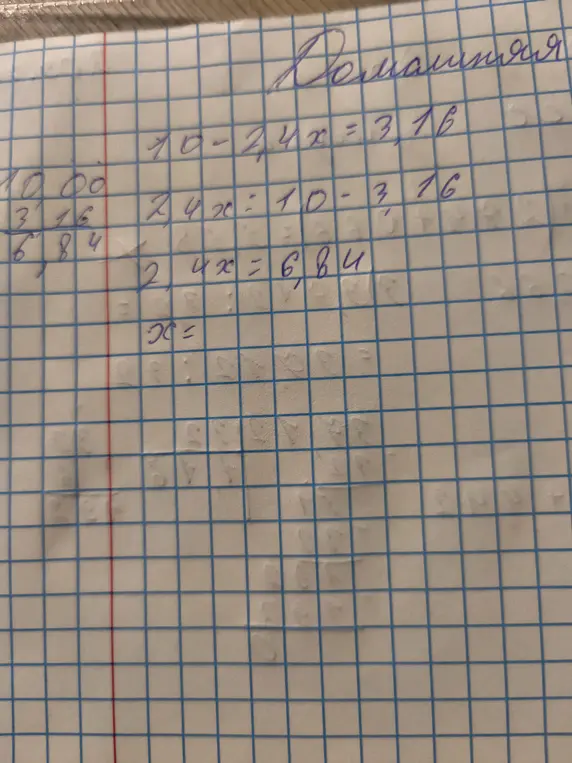 Домашняя
10 - 2,4x = 3,16
10,00
3,16
6,84
2,4x = 10 - 3,16
2,4x = 6,84
x =